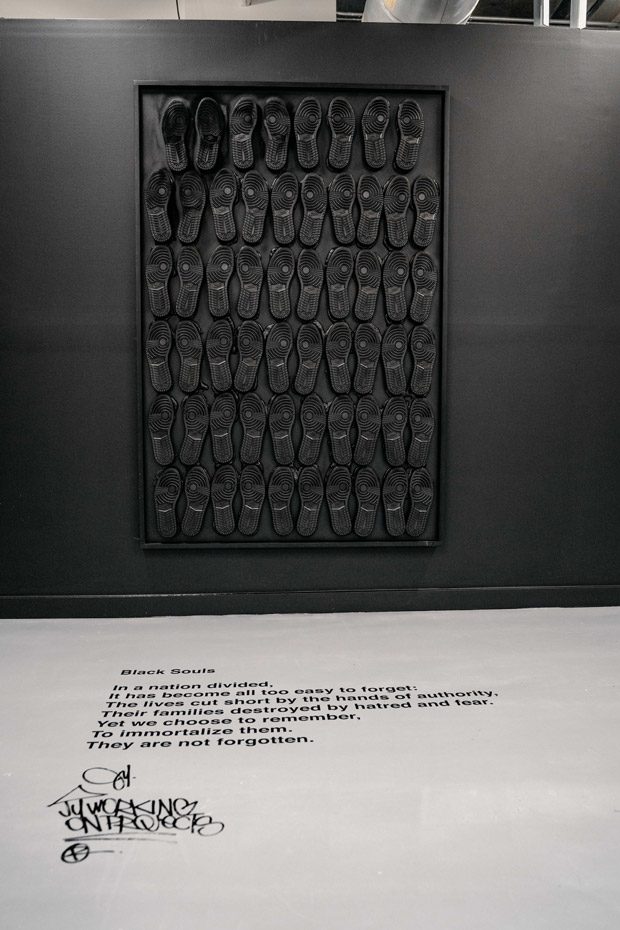 Black Souls
In a nation divided,
It has become all too easy to forget:
The lives cut short by the hands of authority,
Their families destroyed by hatred and fear.
Yet we choose to remember,
To immortalize them.
They are not forgotten.
JY WORKING
ON PROJECTS